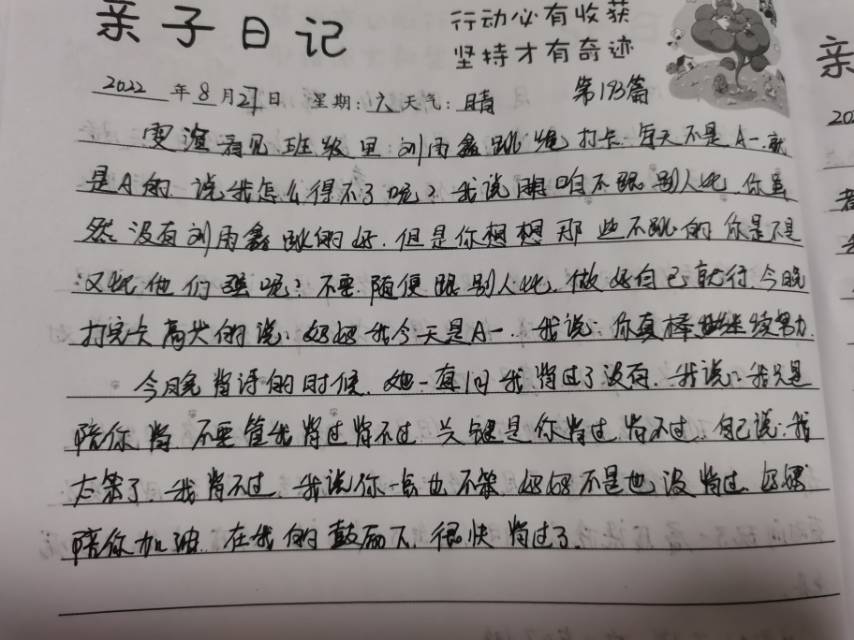 亲子日记
行动必有收获
坚持才有奇迹
2022年8月27日 星期:六 天气:晴 第193篇
雯渲看见班级里刘雨鑫跳绳打卡.每天不是A一.就
是A的.说我怎么得不了呢?我说咱不跟别人比.你虽
然没有刘雨鑫跳的好.但是你想想那些不跳的你是不是
又比他们强呢?不要随便跟别人比.做好自己就行.今晚
打完卡高兴的说:妈妈我今天是A一.我说:你真棒继续努力.
今晚背诗的时候.她一直问我背过了没有.我说:我只是
陪你背.不要管我背过背不过.关键是你背过背不过.自己说:我
太笨了.我背不过.我说你一点也不笨.妈妈不是也没背过.妈妈
陪你加油.在我的鼓励下.很快背过了.
亲
202